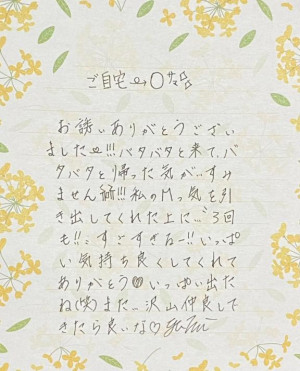 ご自宅→○サマ
お誘いありがとうござい
ました!!!バタバタと来て、バ
タバタと帰った気が…すみ
ません!!!私のMっ気を引
き出してくれた上に…3回
も!!:すごすぎるー!!いっぱ
い気持ち良くしてくれて
ありがとう♡いっぱい出た
ね(笑)また_沢山仲良しで
きたら良いな♡